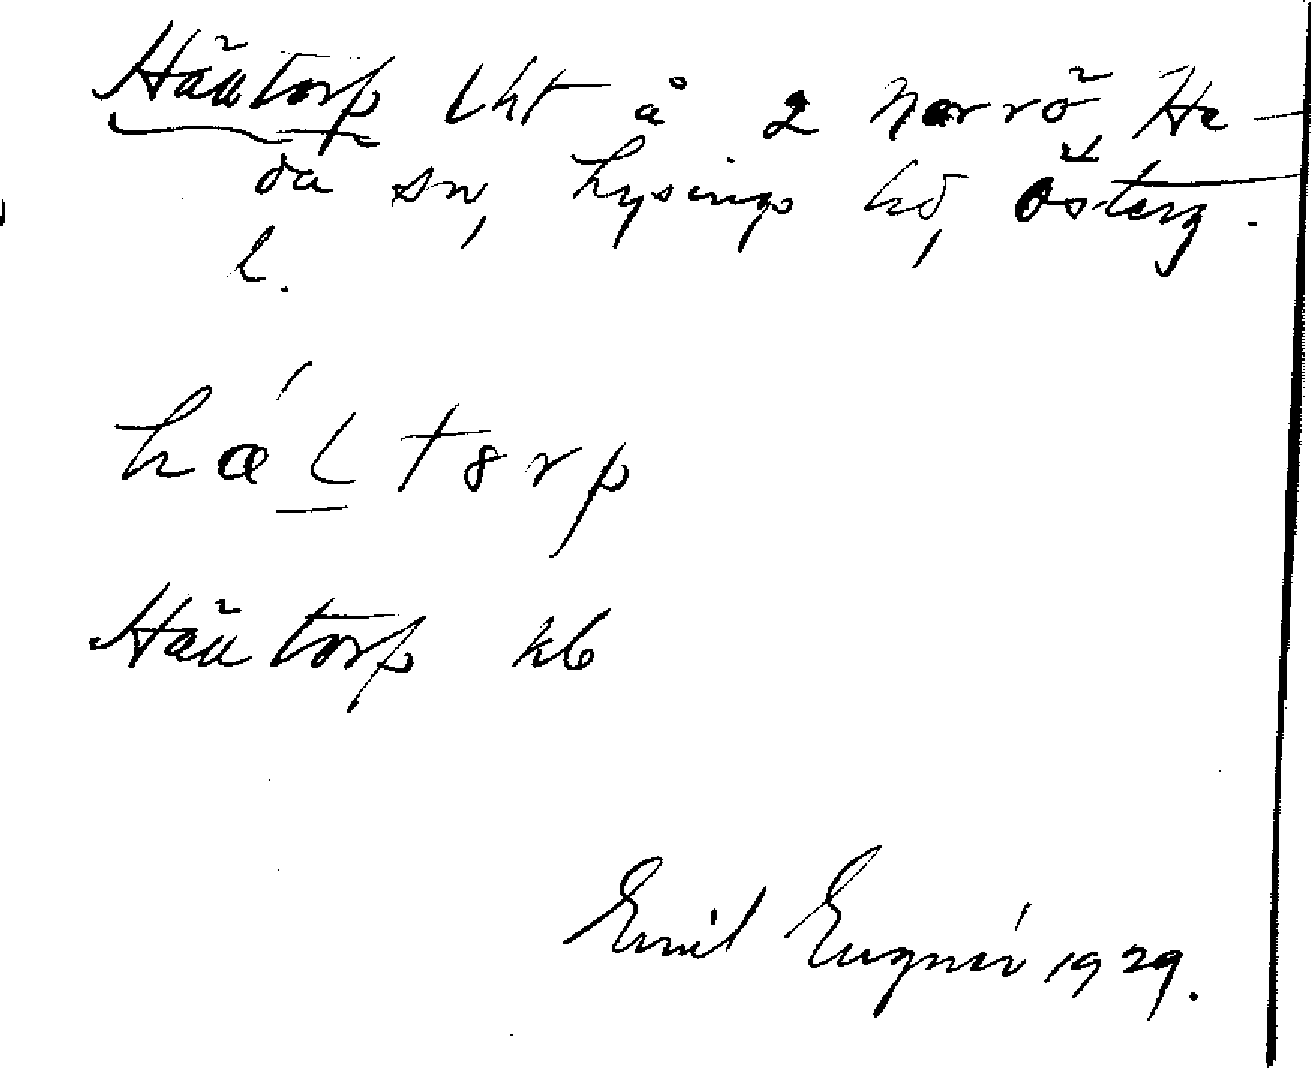 Hälltorp lht å 2 Norrö He-
da sn, Lysings hd, Österg.
l.
Hälltorp kb
Emil Engnér 1929.